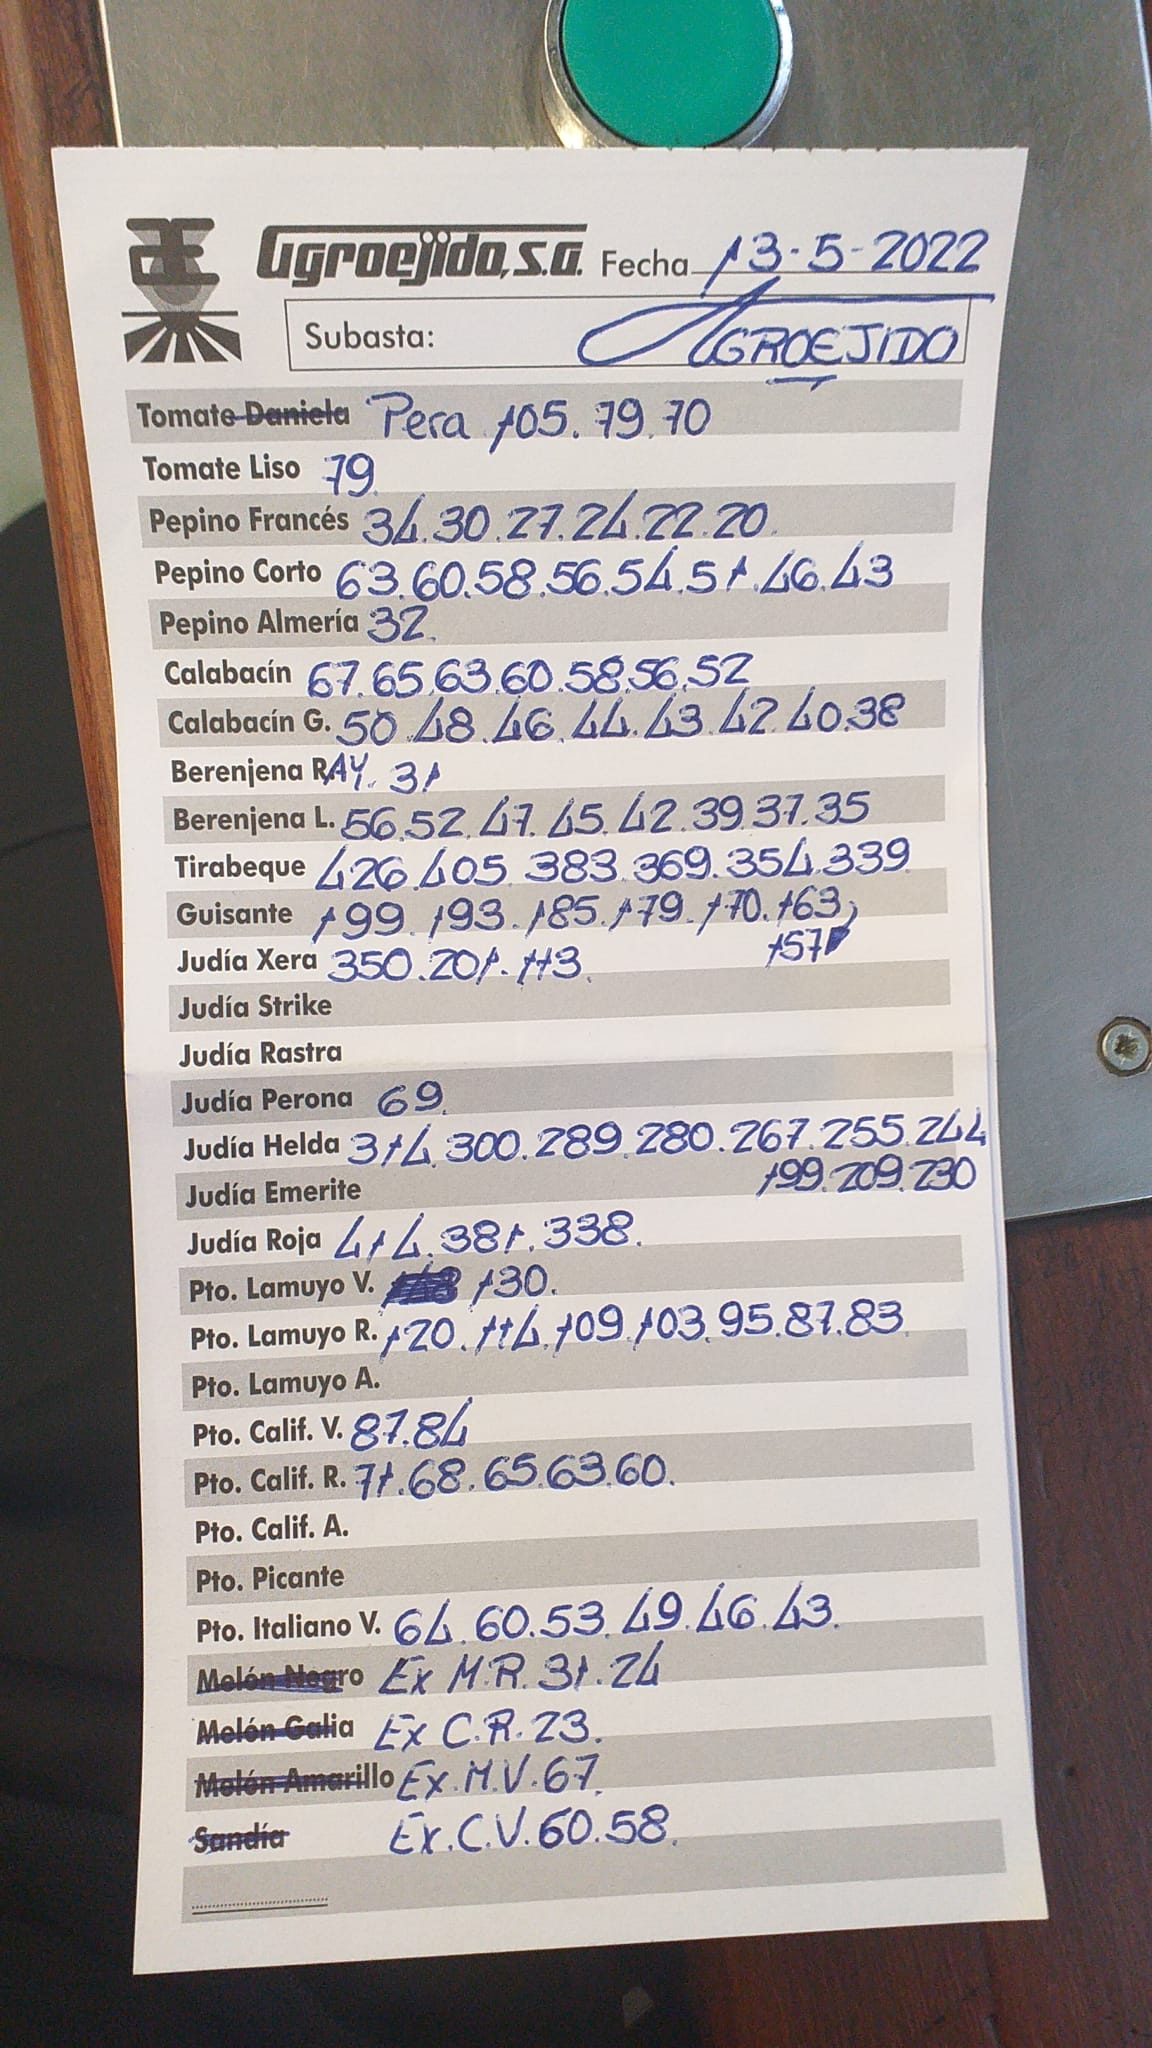 Agroejido, S.A. Fecha 13-5-2022
Subasta: AGROEJIDO
Tomate Daniela Pera 105.79.70
Tomate Liso 79.
Pepino Francés 34.30.27.24.22.20.
Pepino Corto 63.60.58.56.54.51.46.43
Pepino Almería 32.
Calabacín 67.65.63.60.58.56.52
Calabacín G. 50.48.46.44.43.42.40.38
Berenjena RAY. 31
Berenjena L. 56.52.47.45.42.39.37.35
Tirabeque 426.405.383.369.354.339.
Guisante 199.193.185.179.170.163,
157
Judía Xera 350.201.113.
Judía Strike
Judía Rastra
Judía Perona 69.
Judía Helda 314.300.289.280.267.255.244
199.209.230
Judía Emerite
Judía Roja 414.381.338.
Pto. Lamuyo V. 130.
Pto. Lamuyo R. 120.114.109.103.95.87.83.
Pto. Lamuyo A.
Pto. Calif. V. 87.84
Pto. Calif. R. 71.68.65.63.60.
Pto. Calif. A.
Pto. Picante
Pto. Italiano V. 64.60.53.49.46.43.
Melón Negro Ex M.R. 31.24
Melón Galia Ex C.R. 23.
Melón Amarillo Ex.M.V. 67.
Sandía Ex.C.V. 60.58.